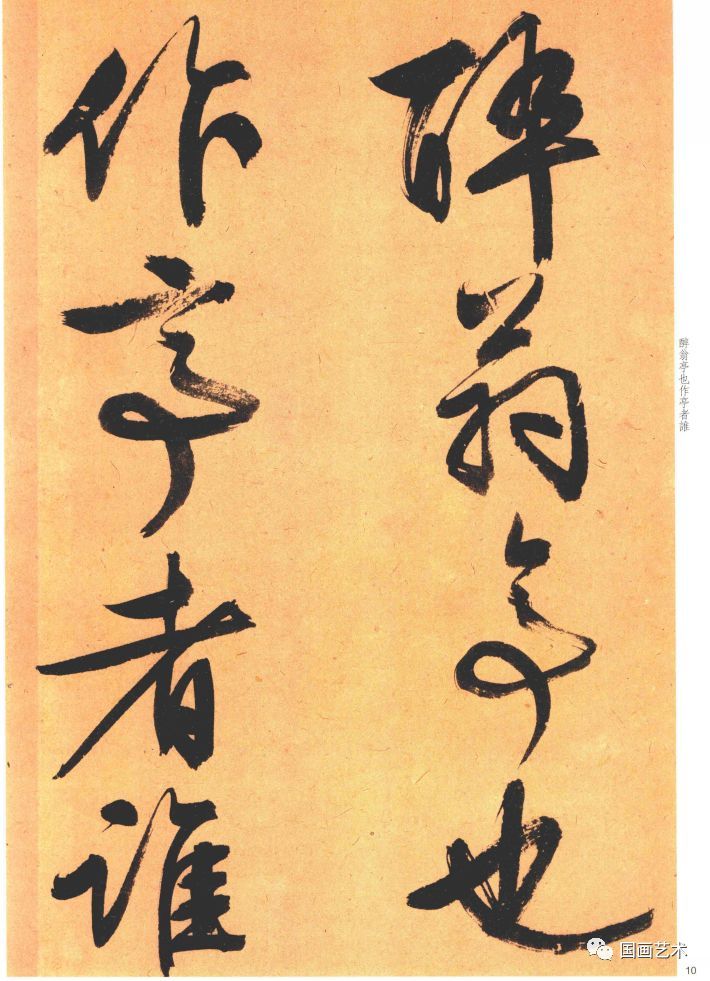 醉翁亭也
作亭者誰
醉翁亭也作亭者誰
国画艺术
10